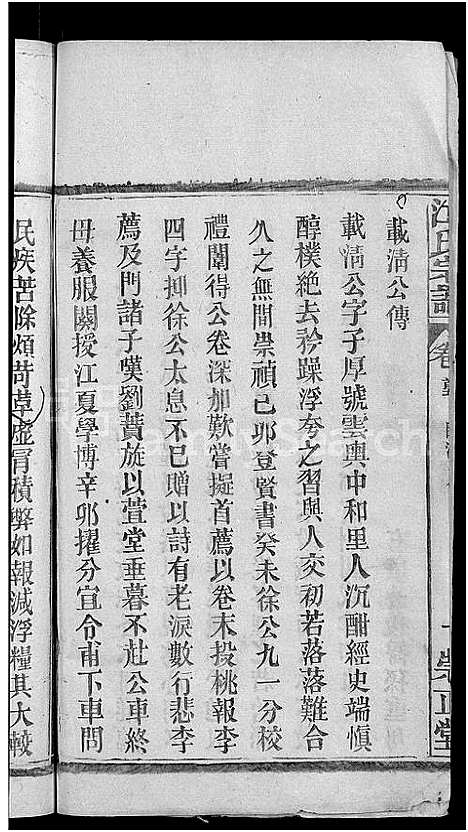 汪氏宗譜
卷
崇正堂
載淸公傳
載淸公字子厚號雲輿中和里人沉酣經史端愼
醇樸絶去矜躁浮夸之習與人交初若落落難合
久之無間崇禎己卯登賢書癸未徐公九一分校
禮闈得公卷深加歎嘗擬首薦以卷末投桃報李
四字抑徐公太息不已贈以詩有老淚數行悲李
薦及門諸子嘆劉蕡旋以萱堂垂暮不赴公車終
母養服闋授江夏學博辛卯擢分宜令甫下車問
民疾苦除煩苛草虛冐積弊如報減浮糧其大較